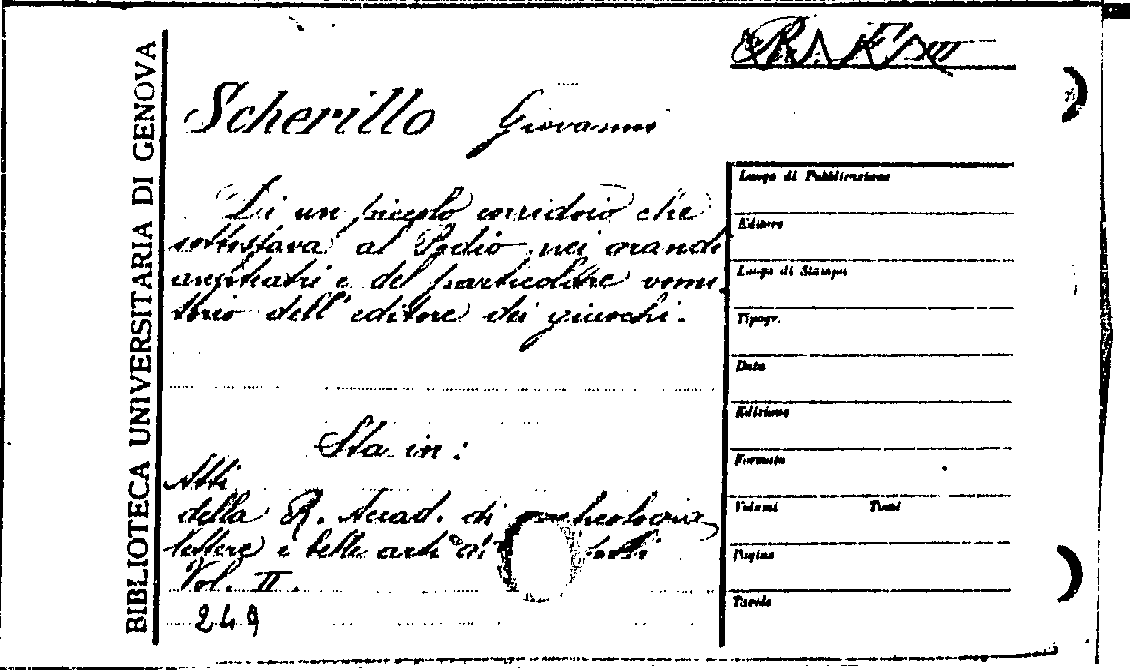 BIBLIOTECA UNIVERSITARIA DI GENOVA
Scherillo Giovanni
Di un piccolo corridoio che
sottostava al Podio nei grandi
anfiteatri e del particolare vomi
torio dell' editore dei giuochi.
Sta in:
Atti
della R. Accad. di archeologia,
lettere e belle arti di
Vol. II.
249
Luogo di Pubblicazione
Editore
Luogo di Stampa
Tipogr.
Data
Edizione
Formato
Volumi Tomi
Pagine
Tavole